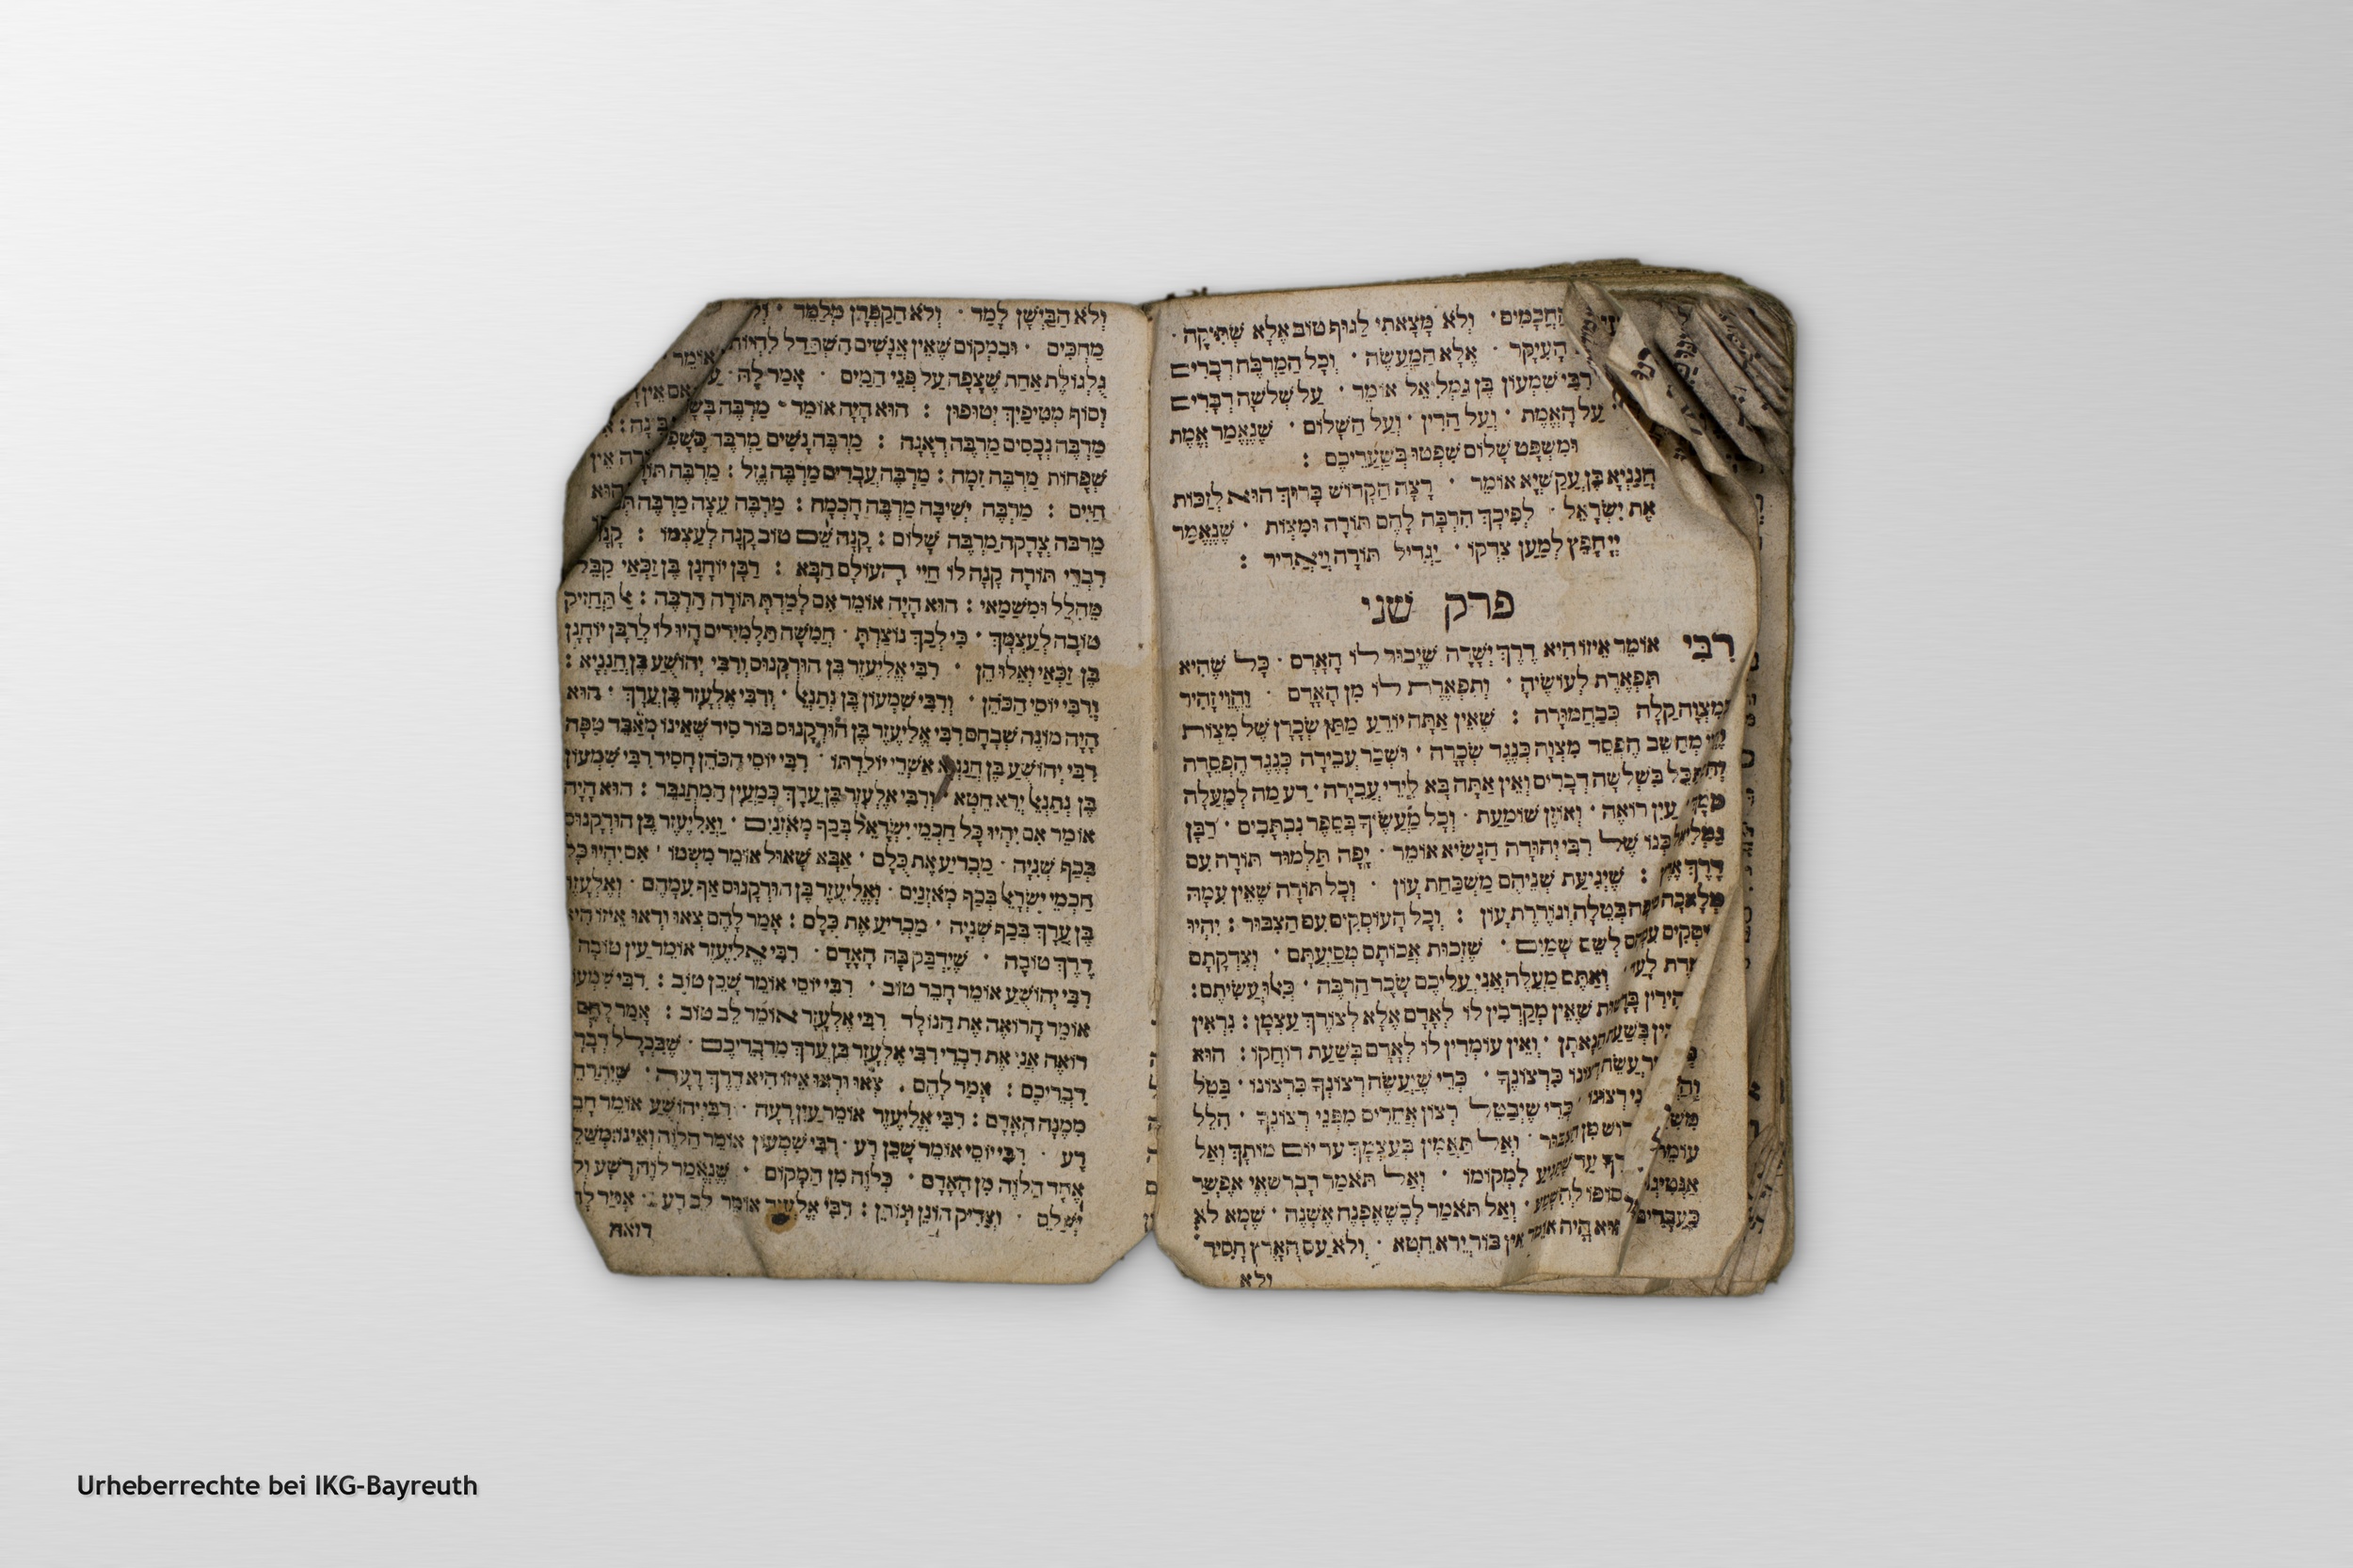 הַחֲכָמִים · וְלֹא מָצָאתִי לַגּוּף טוֹב אֶלָּא שְׁתִיקָה ·
הָעִיקָּר · אֶלָּא הַמַּעֲשֶׂה · וְכָל הַמַּרְבֶּה דְבָרִים
רַבִּי שִׁמְעוֹן בֶּן גַּמְלִיאֵל אוֹמֵר · עַל שְׁלֹשָׁה דְּבָרִים
עַל הָאֱמֶת · וְעַל הַדִּין · וְעַל הַשָּׁלוֹם · שֶׁנֶּאֱמַר אֱמֶת
וּמִשְׁפָּט שָׁלוֹם שִׁפְטוּ בְּשַׁעֲרֵיכֶם :
חֲנַנְיָא בֶּן עֲקַשְׁיָא אוֹמֵר · רָצָה הַקָּדוֹשׁ בָּרוּךְ הוּא לְזַכּוֹת
אֶת יִשְׂרָאֵל · לְפִיכָךְ הִרְבָּה לָהֶם תּוֹרָה וּמִצְוֹת · שֶׁנֶּאֱמַר
יְיָ חָפֵץ לְמַעַן צִדְקוֹ · יַגְדִּיל תּוֹרָה וְיַאֲדִיר :
פרק שני
רַבִּי אוֹמֵר אֵיזוֹ הִיא דֶרֶךְ יְשָׁרָה שֶׁיָּבוֹר לוֹ הָאָדָם · כָּל שֶׁהִיא
תִּפְאֶרֶת לְעוֹשֶׂיהָ · וְתִפְאֶרֶת לוֹ מִן הָאָדָם · וֶהֱוֵי זָהִיר
בְּמִצְוָה קַלָּה כְּבַחֲמוּרָה : שֶׁאֵין אַתָּה יוֹדֵעַ מַתַּן שְׂכָרָן שֶׁל מִצְוֹת
מְחַשֵּׁב הֶפְסֵד מִצְוָה כְּנֶגֶד שְׂכָרָהּ · וּשְׂכַר עֲבֵירָה כְּנֶגֶד הֶפְסֵדָהּ
בִּשְׁלֹשָׁה דְבָרִים וְאֵין אַתָּה בָּא לִידֵי עֲבֵירָה · דַּע מַה לְמַעְלָה
עַיִן רוֹאָה · וְאוֹזֶן שׁוֹמַעַת · וְכָל מַעֲשֶׂיךָ בְּסֵפֶר נִכְתָּבִים · רַבָּן
גַּמְלִיאֵל בְּנוֹ שֶׁל רַבִּי יְהוּדָה הַנָּשִׂיא אוֹמֵר · יָפֶה תַּלְמוּד תּוֹרָה עִם
דֶּרֶךְ אֶרֶץ : שֶׁיְּגִיעַת שְׁנֵיהֶם מַשְׁכַּחַת עָוֹן · וְכָל תּוֹרָה שֶׁאֵין עִמָּהּ
מְלָאכָה סוֹפָהּ בְּטֵלָה וְגוֹרֶרֶת עָוֹן : וְכָל הָעוֹסְקִים עִם הַצִּבּוּר : יִהְיוּ
עִמָּהֶם לְשֵׁם שָׁמַיִם · שֶׁזְּכוּת אֲבוֹתָם מְסַיַּעְתָּם · וְצִדְקָתָם
לָעַד וְאַתֶּם מַעֲלֶה אֲנִי עֲלֵיכֶם שָׂכָר הַרְבֵּה · כְּאִלּוּ עֲשִׂיתֶם :
שֶׁאֵין מְקָרְבִין לוֹ לְאָדָם אֶלָּא לְצוֹרֶךְ עַצְמָן : נִרְאִין
הֲנָאָתָן · וְאֵין עוֹמְדִין לוֹ לְאָדָם בִּשְׁעַת דּוֹחְקוֹ : הוּא
כִּרְצוֹנֶךָ · כְּדֵי שֶׁיַּעֲשֶׂה רְצוֹנְךָ כִּרְצוֹנוֹ · בַּטֵּל
כְּדֵי שֶׁיְּבַטֵּל רְצוֹן אֲחֵרִים מִפְּנֵי רְצוֹנֶךָ · הִלֵּל
וְאַל תַּאֲמִין בְּעַצְמְךָ עַד יוֹם מוֹתְךָ וְאַל
לִמְקוֹמוֹ · וְאַל תֹּאמַר דָּבָר שֶׁאִי אֶפְשָׁר
וְאַל תֹּאמַר לִכְשֶׁאֶפָּנֶה אֶשְׁנֶה · שֶׁמָּא לֹא
הָיָה אוֹמֵר אֵין בּוּר יְרֵא חֵטְא · וְלֹא עַם הָאָרֶץ חָסִיד
ולא
וְלֹא הַבַּיְשָׁן לָמֵד · וְלֹא הַקַּפְּדָן מְלַמֵּד
מַחְכִּים · וּבִמְקוֹם שֶׁאֵין אֲנָשִׁים הִשְׁתַּדֵּל לִהְיוֹת
גֻּלְגּוֹלֶת אַחַת שֶׁצָּפָה עַל פְּנֵי הַמַּיִם · אָמַר לָהּ
וְסוֹף מְטִיפַיִךְ יְטוּפוּן : הוּא הָיָה אוֹמֵר · מַרְבֶּה בָשָׂר
מַרְבֶּה נְכָסִים מַרְבֶּה דְאָגָה : מַרְבֶּה נָשִׁים מַרְבֶּה כְּשָׁפִים
שְׁפָחוֹת מַרְבֶּה זִמָּה : מַרְבֶּה עֲבָדִים מַרְבֶּה גָזֵל : מַרְבֶּה תוֹרָה
חַיִּים : מַרְבֶּה יְשִׁיבָה מַרְבֶּה חָכְמָה : מַרְבֶּה עֵצָה מַרְבֶּה
מַרְבֶּה צְדָקָה מַרְבֶּה שָׁלוֹם : קָנָה שֵׁם טוֹב קָנָה לְעַצְמוֹ : קָנָה
דִבְרֵי תוֹרָה קָנָה לוֹ חַיֵּי הָעוֹלָם הַבָּא : רַבָּן יוֹחָנָן בֶּן זַכַּאי קִבֵּל
מֵהִלֵּל וּמִשַּׁמַּאי : הוּא הָיָה אוֹמֵר אִם לָמַדְתָּ תּוֹרָה הַרְבֵּה : אַל תַּחֲזִיק
טוֹבָה לְעַצְמְךָ · כִּי לְכָךְ נוֹצַרְתָּ · חֲמִשָּׁה תַלְמִידִים הָיוּ לוֹ לְרַבָּן יוֹחָנָן
בֶּן זַכַּאי וְאֵלּוּ הֵן · רַבִּי אֱלִיעֶזֶר בֶּן הוֹרְקָנוּס וְרַבִּי יְהוֹשֻׁעַ בֶּן חֲנַנְיָא :
וְרַבִּי יוֹסֵי הַכֹּהֵן · וְרַבִּי שִׁמְעוֹן בֶּן נְתַנְאֵל · וְרַבִּי אֶלְעָזָר בֶּן עֲרָךְ · הוּא
הָיָה מוֹנֶה שְׁבָחָם רַבִּי אֱלִיעֶזֶר בֶּן הוֹרְקָנוּס בּוֹר סִיד שֶׁאֵינוֹ מְאַבֵּד טִפָּה
רַבִּי יְהוֹשֻׁעַ בֶּן חֲנַנְיָא אַשְׁרֵי יוֹלַדְתּוֹ · רַבִּי יוֹסֵי הַכֹּהֵן חָסִיד רַבִּי שִׁמְעוֹן
בֶּן נְתַנְאֵל יְרֵא חֵטְא · וְרַבִּי אֶלְעָזָר בֶּן עֲרָךְ כְּמַעְיָן הַמִּתְגַּבֵּר : הוּא הָיָה
אוֹמֵר אִם יִהְיוּ כָּל חַכְמֵי יִשְׂרָאֵל בְּכַף מֹאזְנַיִם · וֶאֱלִיעֶזֶר בֶּן הוֹרְקָנוּס
בְּכַף שְׁנִיָּה · מַכְרִיעַ אֶת כֻּלָּם · אַבָּא שָׁאוּל אוֹמֵר מִשְּׁמוֹ · אִם יִהְיוּ כָּל
חַכְמֵי יִשְׂרָאֵל בְּכַף מֹאזְנַיִם · וֶאֱלִיעֶזֶר בֶּן הוֹרְקָנוּס אַף עִמָּהֶם · וְאֶלְעָזָר
בֶּן עֲרָךְ בְּכַף שְׁנִיָּה · מַכְרִיעַ אֶת כֻּלָּם : אָמַר לָהֶם צְאוּ וּרְאוּ אֵיזוֹ הִיא
דֶּרֶךְ טוֹבָה · שֶׁיִּדְבַּק בָּהּ הָאָדָם · רַבִּי אֱלִיעֶזֶר אוֹמֵר עַיִן טוֹבָה
רַבִּי יְהוֹשֻׁעַ אוֹמֵר חָבֵר טוֹב · רַבִּי יוֹסֵי אוֹמֵר שָׁכֵן טוֹב : רַבִּי שִׁמְעוֹן
אוֹמֵר הָרוֹאֶה אֶת הַנּוֹלָד רַבִּי אֶלְעָזָר אוֹמֵר לֵב טוֹב : אָמַר לָהֶם
רוֹאֶה אֲנִי אֶת דִּבְרֵי רַבִּי אֶלְעָזָר בֶּן עֲרָךְ מִדִּבְרֵיכֶם · שֶׁבִּכְלַל דְּבָרָיו
דִּבְרֵיכֶם : אָמַר לָהֶם · צְאוּ וּרְאוּ אֵיזוֹ הִיא דֶּרֶךְ רָעָה · שֶׁיִּתְרַחֵק
מִמֶּנָּה הָאָדָם : רַבִּי אֱלִיעֶזֶר אוֹמֵר עַיִן רָעָה · רַבִּי יְהוֹשֻׁעַ אוֹמֵר חָבֵר
רָע · רַבִּי יוֹסֵי אוֹמֵר שָׁכֵן רָע · רַבִּי שִׁמְעוֹן אוֹמֵר הַלֹּוֶה וְאֵינוֹ מְשַׁלֵּם
אֶחָד הַלֹּוֶה מִן הָאָדָם · כְּלֹוֶה מִן הַמָּקוֹם · שֶׁנֶּאֱמַר לֹוֶה רָשָׁע וְלֹא
יְשַׁלֵּם · וְצַדִּיק חוֹנֵן וְנוֹתֵן : רַבִּי אֶלְעָזָר אוֹמֵר לֵב רָע · אָמַר לָהֶם
רואה
Urheberrechte bei IKG-Bayreuth